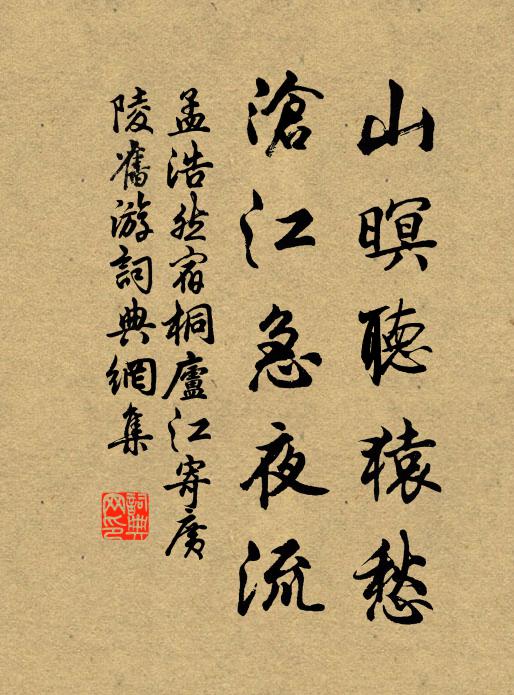 山暝聽猿愁
滄江急夜流
孟浩然宿桐廬江寄廣
陵舊游詞典網集
詞典
网印